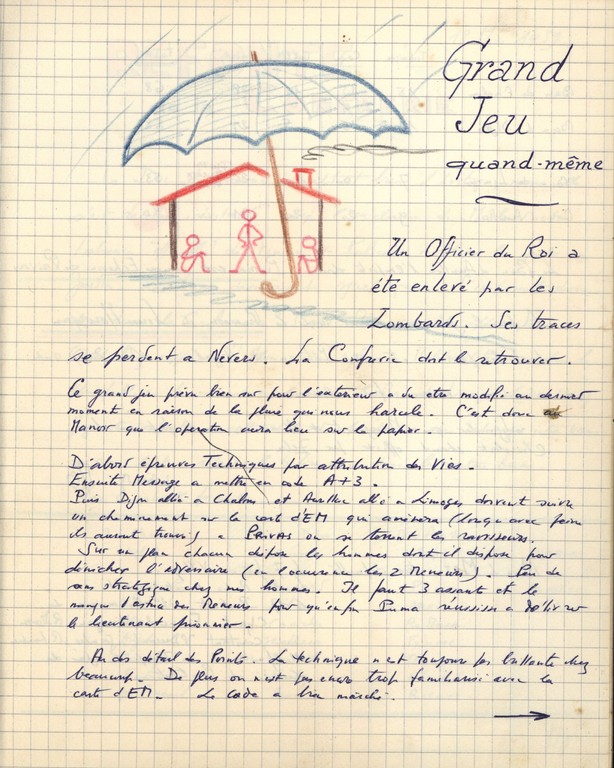 Grand
Jeu
quand-même
Un Officier du Roi a
été enlevé par les
Lombards. Ses traces
se perdent a Nevers. La Confrerie doit le retrouver.
Ce grand jeu prévu bien sur pour l'exterieur a du etre modifié au dernier
moment en raison de la pluie qui nous harcele. C'est donc au
Manoir que l'operation aura lieu sur le papier.
D'abord épreuves Techniques par attribution des Vies.
Ensuite Message a mettre en code A+3.
Puis Dijon allié a Chalons et Aurillac allié a Limoges doivent suivre
un cheminement sur la carte d'EM qui amènera (lorsque avec peine
ils auront trouvé) a PRIVAS ou se terrent les ravisseurs.
Sur un plan chacun dispose les hommes dont il dispose pour
dénicher l'adversaire (en l'occurence les 2 Meneurs). Peu de
sens stratégique chez nos hommes. Il faut 3 assauts et le
manque d'astuce des Meneurs pour qu'enfin Puma réussisse a délivrer
le lieutenant prisonnier.
Au dos détail des Points. La technique n'est toujours pas brillante chez
beaucoup. De plus on n'est pas encore trop familiarisé avec la
carte d'EM. Le Code a bien marché.